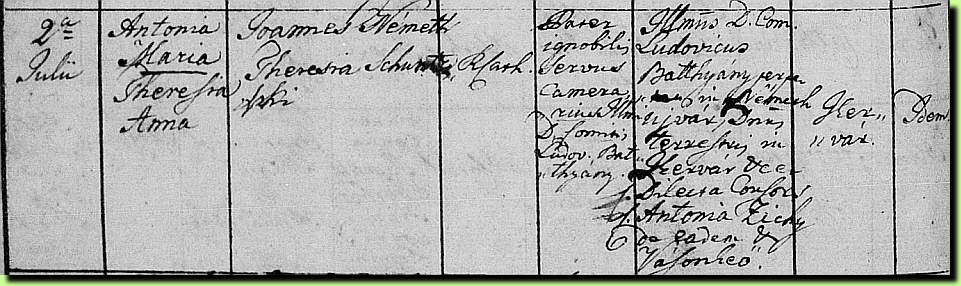 2ª Julii
Antonia
Maria
Theresia
Anna
Joannes Németh
Theresia
R. Cath.
Pater
ignobilis
servus
Camera
rius Illm
D. Comitis
Ludov. Bat
"thyány.
Illmus D. Com.
Ludovicus
Batthyány
in Németh
Ujvár, Dnus
terrestris in
Körvár &
Dilecta Consors
Antonia Zichy
de eadem &
Vásonkeö"
"vár.
Idem.